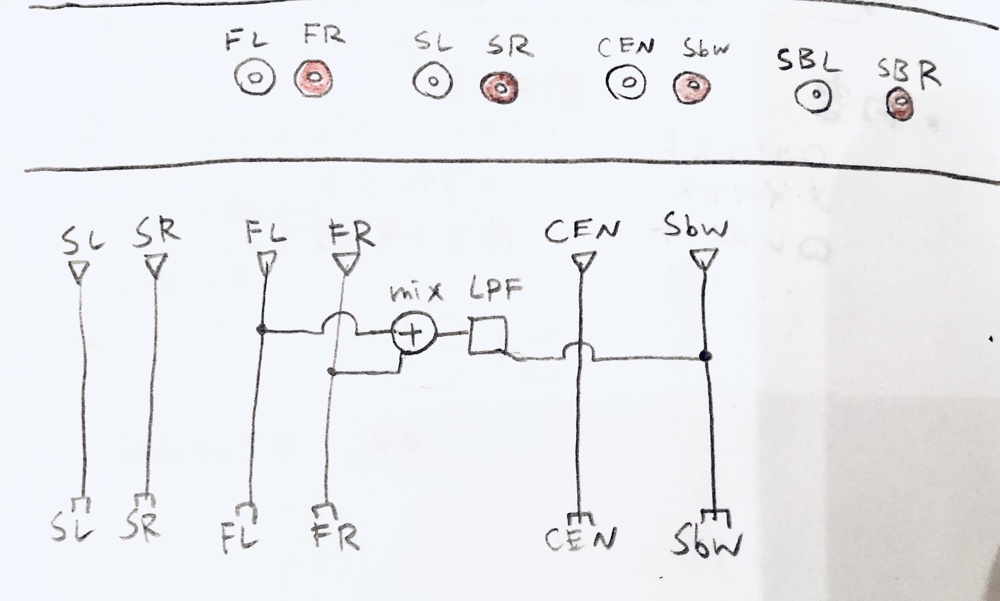 FL FR SL SR CEN Sbw SBL SBR
SL SR FL FR CEN Sbw
mix LPF
+
SL SR FL FR CEN Sbw